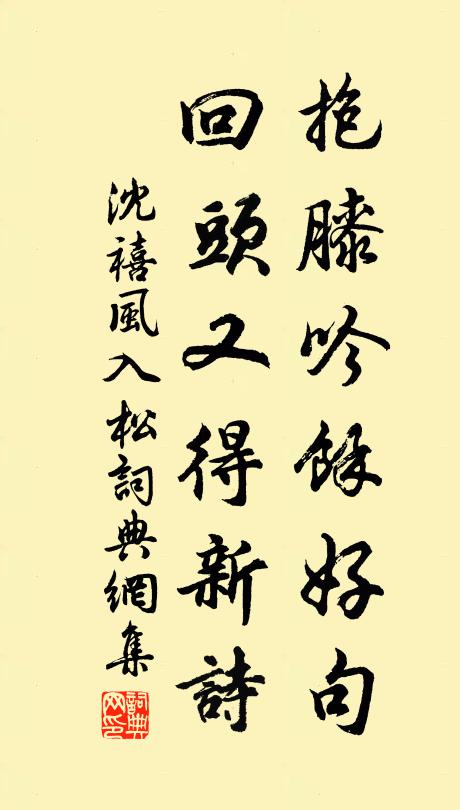 抱膝吟餘好句
回頭又得新詩
沈禧風入松詞典網集
詞典
网印